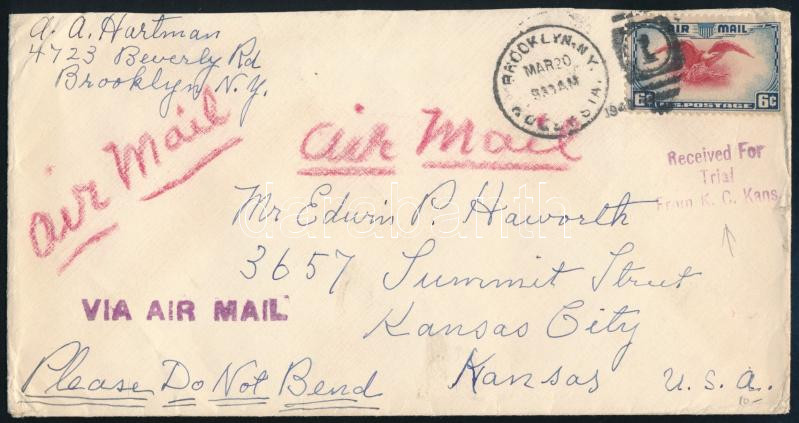 A. A. Hartman
4723 Beverly Rd
Brooklyn N. Y.
BROOKLYN, N.Y.
MAR 20
1
AIR MAIL
6¢ U.S. POSTAGE 6¢
air Mail
air Mail
Received For
Trial
From K. C. Kans.
Mr Edwin P. Haworth
3657 Summit Street
Kansas City
Kansas U. S. A.
VIA AIR MAIL
Please Do Not Bend
10-
darabanth